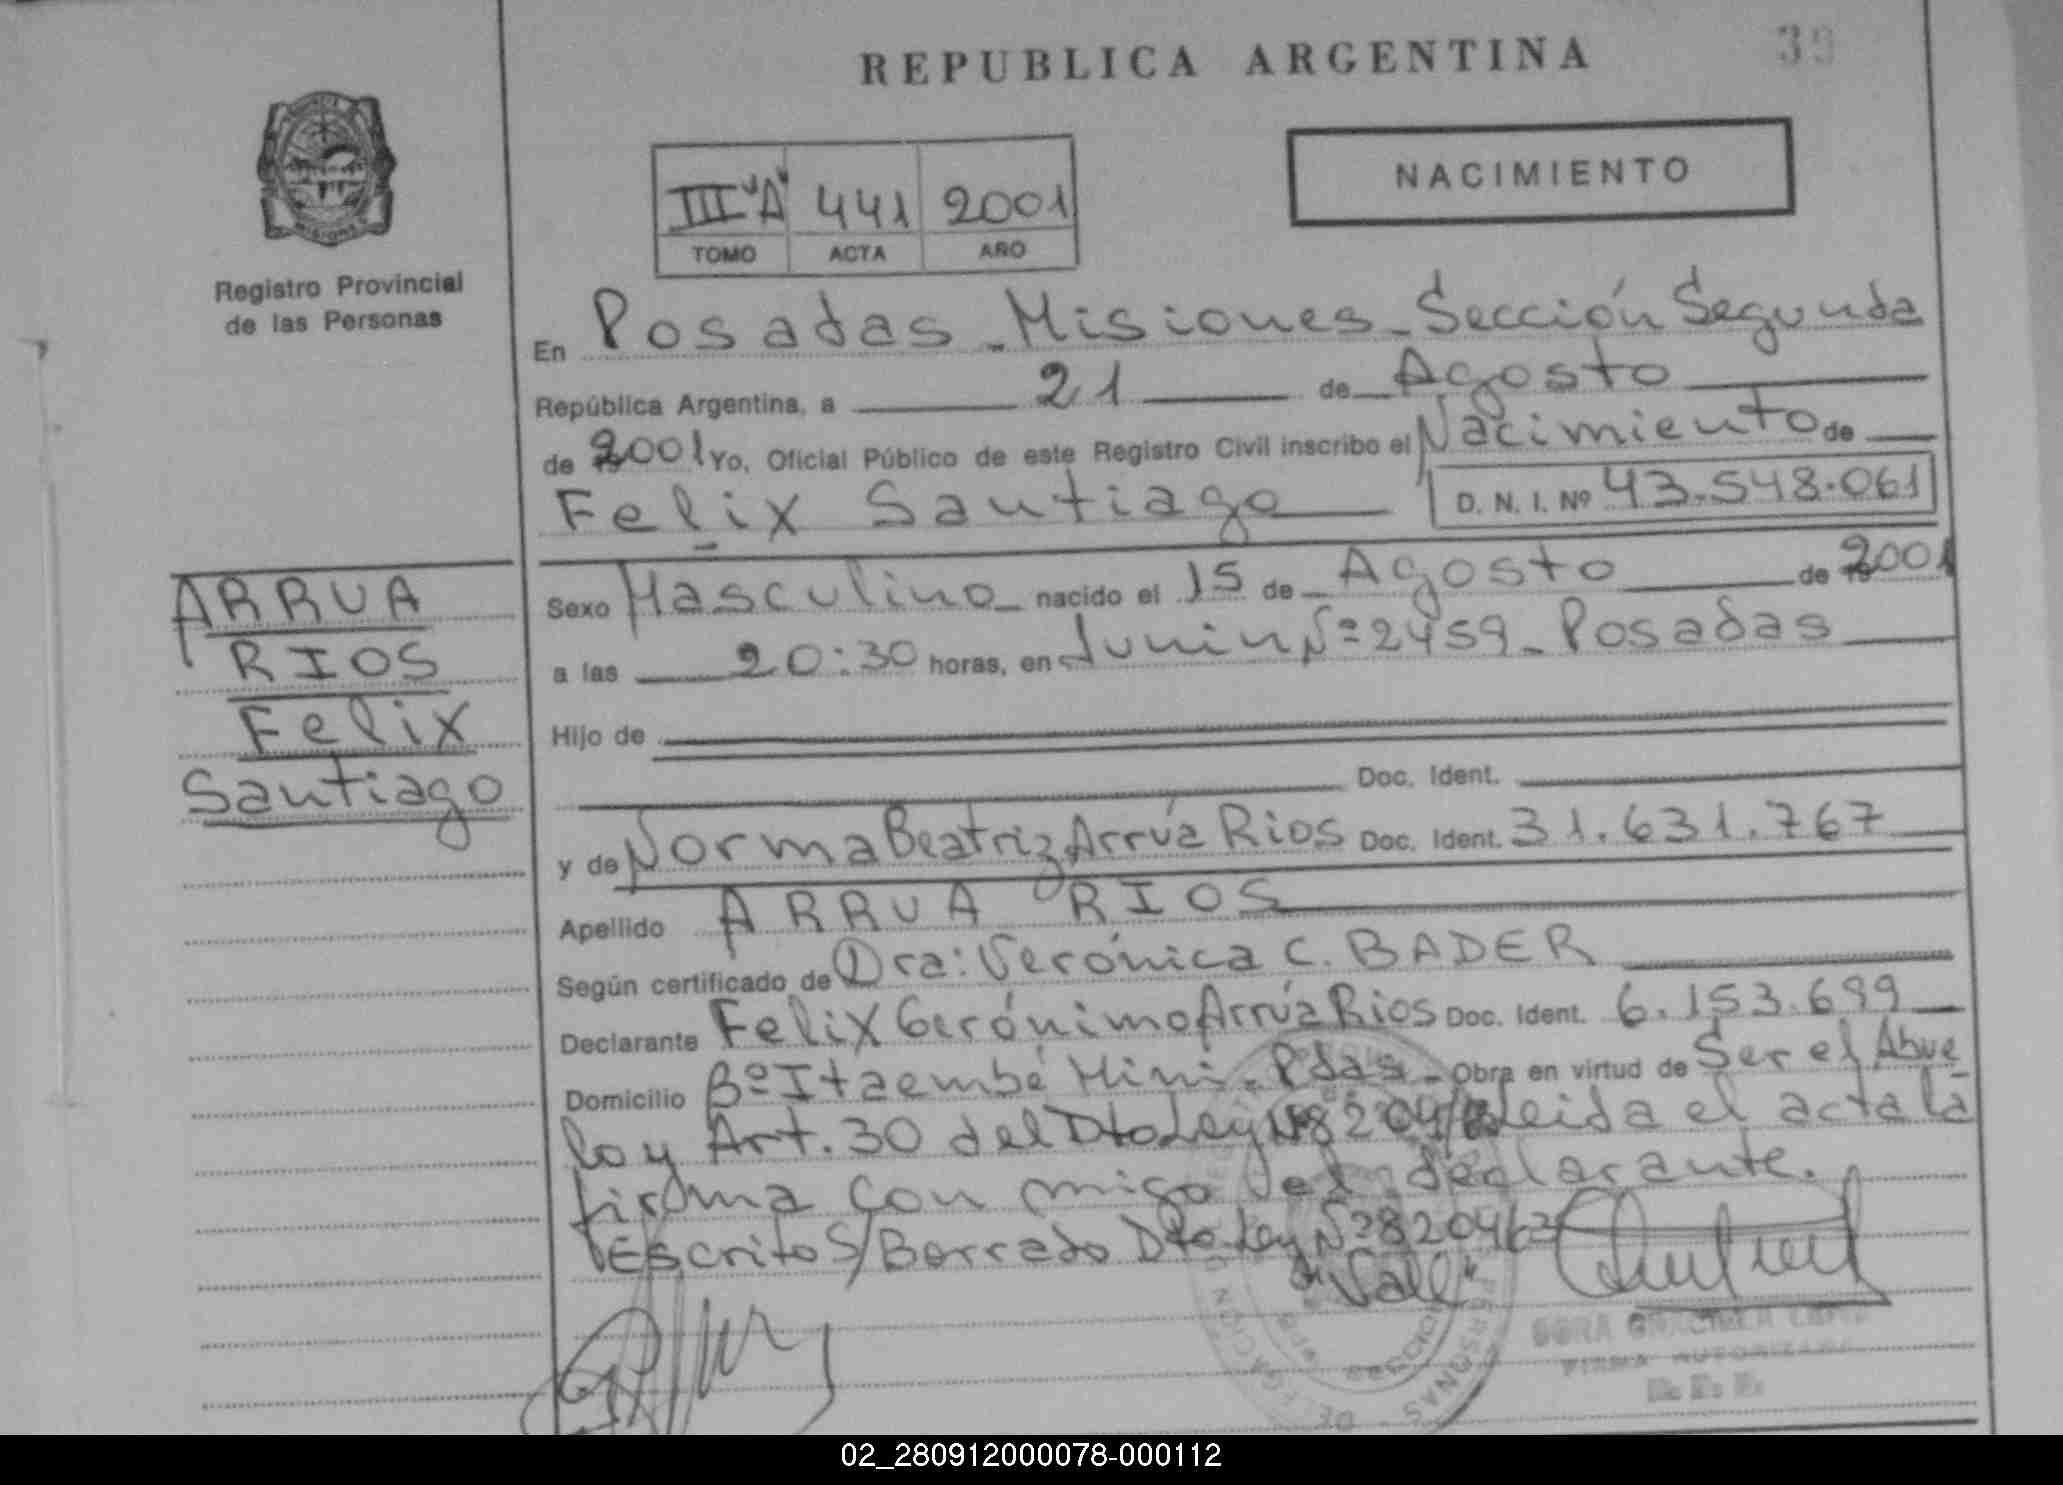 REPUBLICA ARGENTINA
39
Registro Provincial
de las Personas
III "A" 441 2001
TOMO ACTA AÑO
NACIMIENTO
En Posadas - Misiones - Sección Segunda
República Argentina, a 21 de Agosto
de 2001 Yo, Oficial Público de este Registro Civil inscribo el Nacimiento de
Felix Santiago D. N. I. Nº 43.548.061
ARRUA
RIOS
Felix
Santiago
Sexo Masculino nacido el 15 de Agosto de 2001
a las 20:30 horas, en Junin Nº 2459 - Posadas
Hijo de
Doc. Ident.
y de Norma Beatriz Arrúa Rios Doc. Ident. 31.631.767
Apellido ARRUA RIOS
Según certificado de Dra: Verónica C. BADER
Declarante Felix Gerónimo Arrúa Rios Doc. Ident. 6.153.699
Domicilio Bº Itaembé Mini - Pdas - Obra en virtud de Ser el Abue
lo y Art. 30 del Dto Ley 8204/63 Leida el acta la
firma con migo el declarante.
Escrito S/Borrado Dto Ley Nº 8204 63
"Vale"
FIRMA AUTORIZADA
02_280912000078-000112